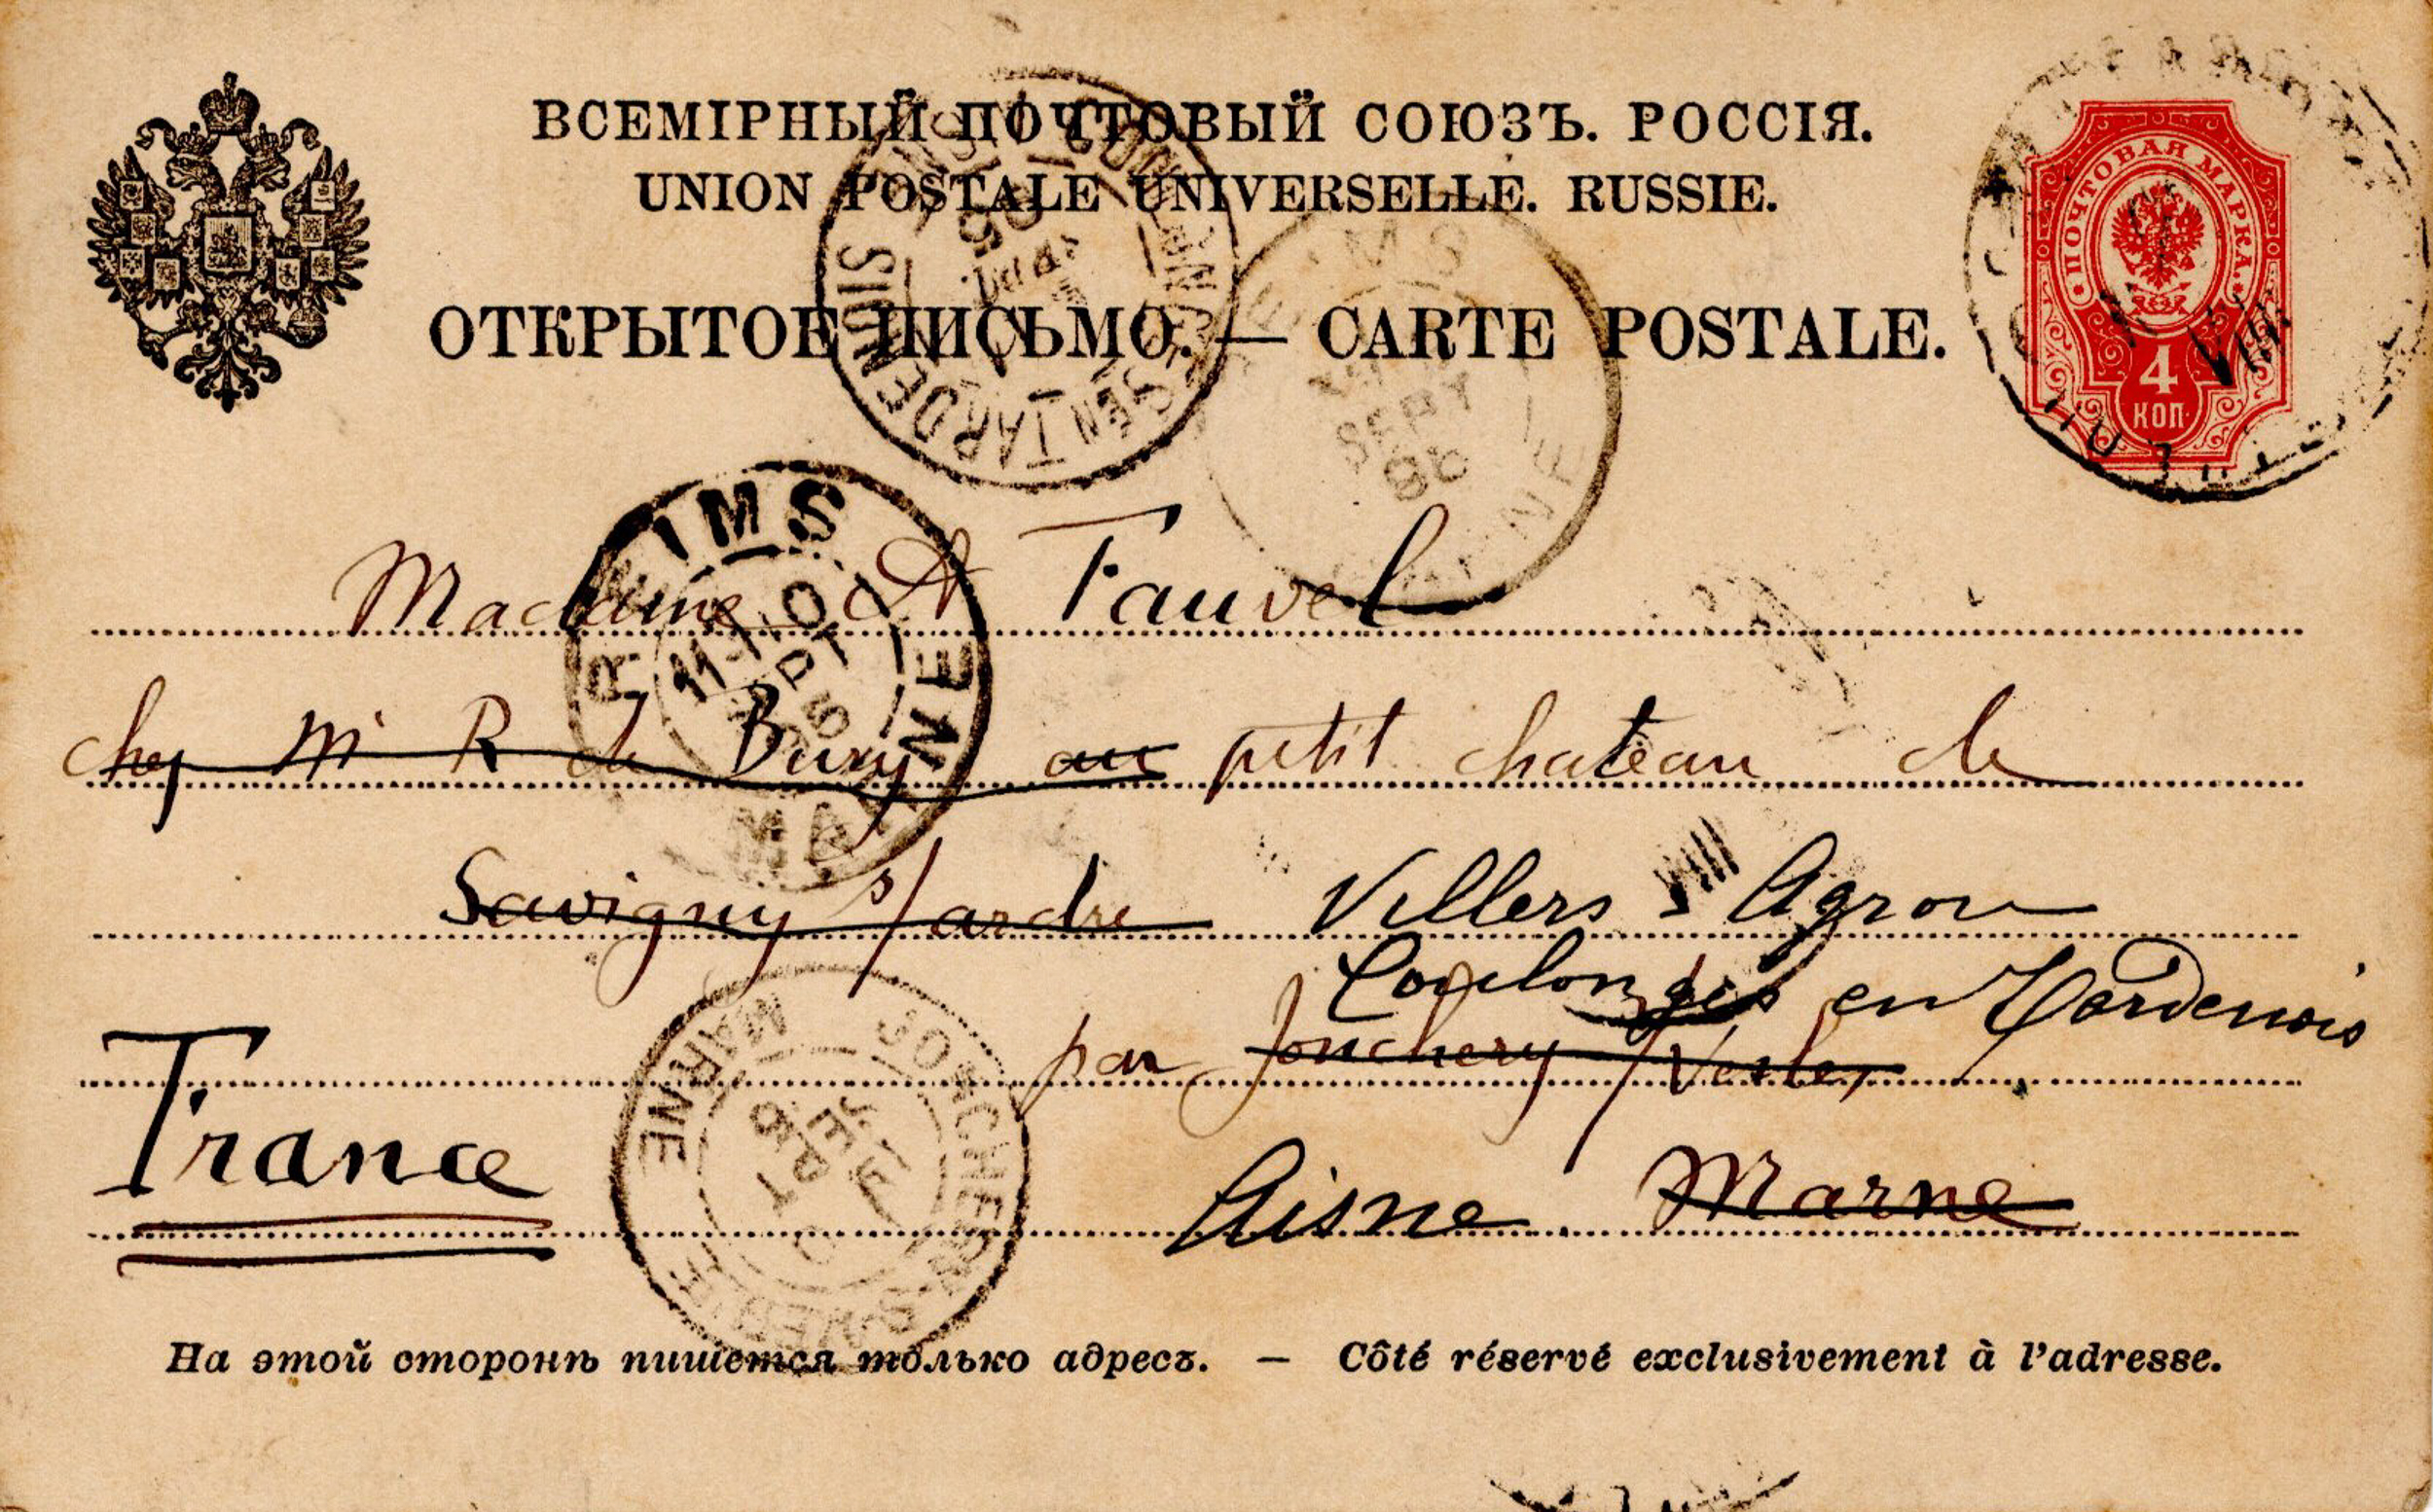 ВСЕМІРНЫЙ ПОЧТОВЫЙ СОЮЗЪ. РОССІЯ.
UNION POSTALE UNIVERSELLE. RUSSIE.
ОТКРЫТОЕ ПИСЬМО. — CARTE POSTALE.
ПОЧТОВАЯ МАРКА
4
КОП
EN TARDENOIS
REIMS
SEPT
MARNE
REIMS
MARNE
Madame A Fauvel
chez Mr R de Bury au petit chateau de
Savigny s/ardre Villers Agron
Coulonges en Tardenois
par Jonchery s/Vesles
France
Aisne Marne
JONCHERY-S-VESLE
MARNE
SEPT
На этой сторонѣ пишется только адресъ. — Côté réservé exclusivement à l'adresse.